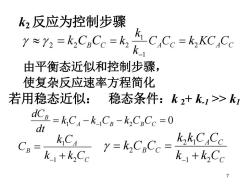 k₂ 反应为控制步骤
γ ≈ γ₂ = k₂C_B C_C = k₂ (k₁/k₋₁) C_A C_C = k₂KC_A C_C
由平衡态近似和控制步骤，
使复杂反应速率方程简化
若用稳态近似： 稳态条件：k ₂+ k.₁ >> k₁
dC_B/dt = k₁C_A − k₋₁C_B − k₂C_B C_C = 0
C_B = k₁C_A/(k₋₁ + k₂C_C) γ = k₂C_B C_C = k₂k₁C_A C_C/(k₋₁ + k₂C_C)
7